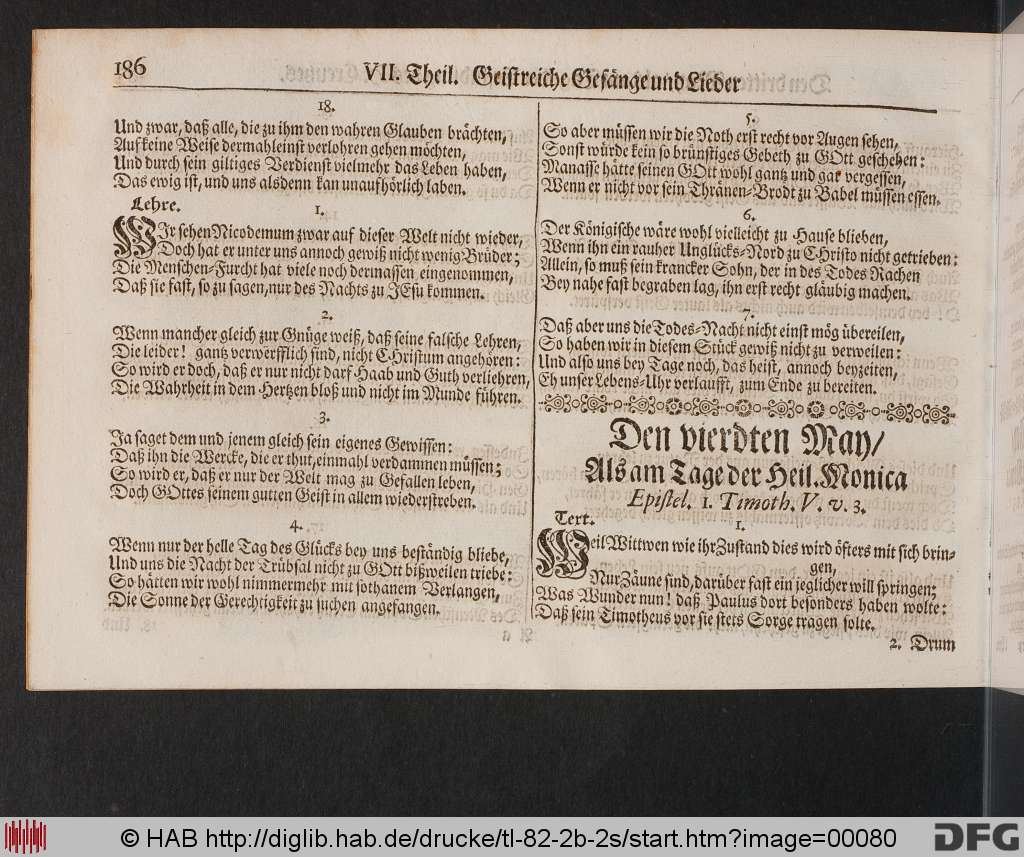 186
VII. Theil. Geistreiche Gesänge und Lieder
18.
Und zwar, daß alle, die zu ihm den wahren Glauben brächten,
Auf keine Weise dermahleinst verlohren gehen möchten,
Und durch sein giltiges Verdienst vielmehr das Leben haben,
Das ewig ist, und uns alsdenn kan unaufhörlich laben.
Lehre.
1.
WIr sehen Nicodemum zwar auf dieser Welt nicht wieder,
Doch hat er unter uns annoch gewiß nicht wenig Brüder;
Die Menschen-Furcht hat viele noch dermassen eingenommen,
Daß sie fast, so zu sagen, nur des Nachts zu JEsu kommen.
2.
Wenn mancher gleich zur Gnüge weiß, daß seine falsche Lehren,
Die leider! gantz verwerfflich sind, nicht CHristum angehören:
So wird er doch, daß er nur nicht darf Haab und Guth verliehren,
Die Wahrheit in dem Hertzen bloß und nicht im Munde führen.
3.
Ja saget dem und jenem gleich sein eigenes Gewissen:
Daß ihn die Wercke, die er thut, einmahl verdammen müssen;
So wird er, daß er nur der Welt mag zu Gefallen leben,
Doch GOttes seinem gutten Geist in allem wiederstreben.
4.
Wenn nur der helle Tag des Glücks bey uns beständig bliebe,
Und uns die Nacht der Trübsal nicht zu GOtt bißweilen triebe:
So hätten wir wohl nimmermehr mit sothanem Verlangen,
Die Sonne der Gerechtigkeit zu suchen angefangen.
5.
So aber müssen wir die Noth erst recht vor Augen sehen,
Sonst würde kein so brünstiges Gebeth zu GOtt geschehen:
Manasse hätte seinen GOtt wohl gantz und gar vergessen,
Wenn er nicht vor sein Thränen-Brodt zu Babel müssen essen.
6.
Der Königische wäre wohl vielleicht zu Hause blieben,
Wenn ihn ein rauher Unglücks-Nord zu CHristo nicht getrieben:
Allein, so muß sein krancker Sohn, der in des Todes Rachen
Bey nahe fast begraben lag, ihn erst recht gläubig machen.
7.
Daß aber uns die Todes-Nacht nicht einst mög übereilen,
So haben wir in diesem Stück gewiß nicht zu verweilen:
Und also uns bey Tage noch, das heist, annoch beyzeiten,
Eh unser Lebens-Uhr verlaufft, zum Ende zu bereiten.
Den vierdten May/
Als am Tage der Heil. Monica
Epistel. 1. Timoth. V. v. 3.
Text.
1.
WEil Wittwen wie ihr Zustand dies wird öfters mit sich brin-
gen,
Nur Zäune sind, darüber fast ein jeglicher will springen;
Was Wunder nun! daß Paulus dort besonders haben wolte:
Daß sein Timotheus vor sie stets Sorge tragen solte.
2. Drum
© HAB http://diglib.hab.de/drucke/tl-82-2b-2s/start.htm?image=00080
DFG